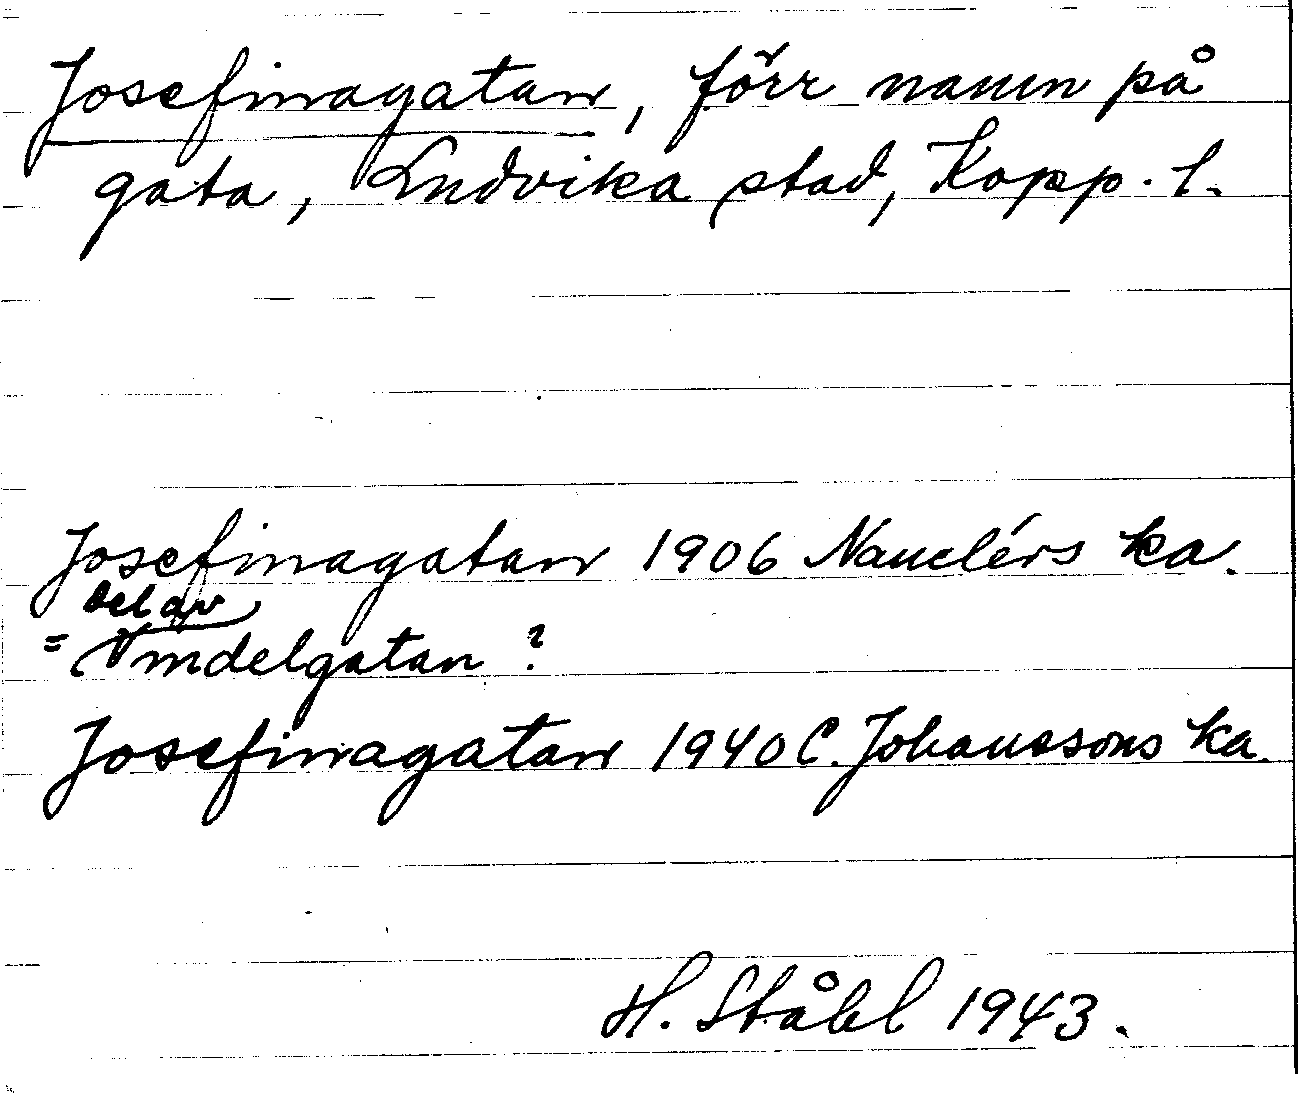 Josefinagatan, förr namn på
gata, Ludvika stad, Kopp. l.
Josefinagatan 1906 Nauclérs ka.
del av
= Vindelgatan ?
Josefinagatan 1940 C. Johanssons ka.
H. Ståhl 1943.